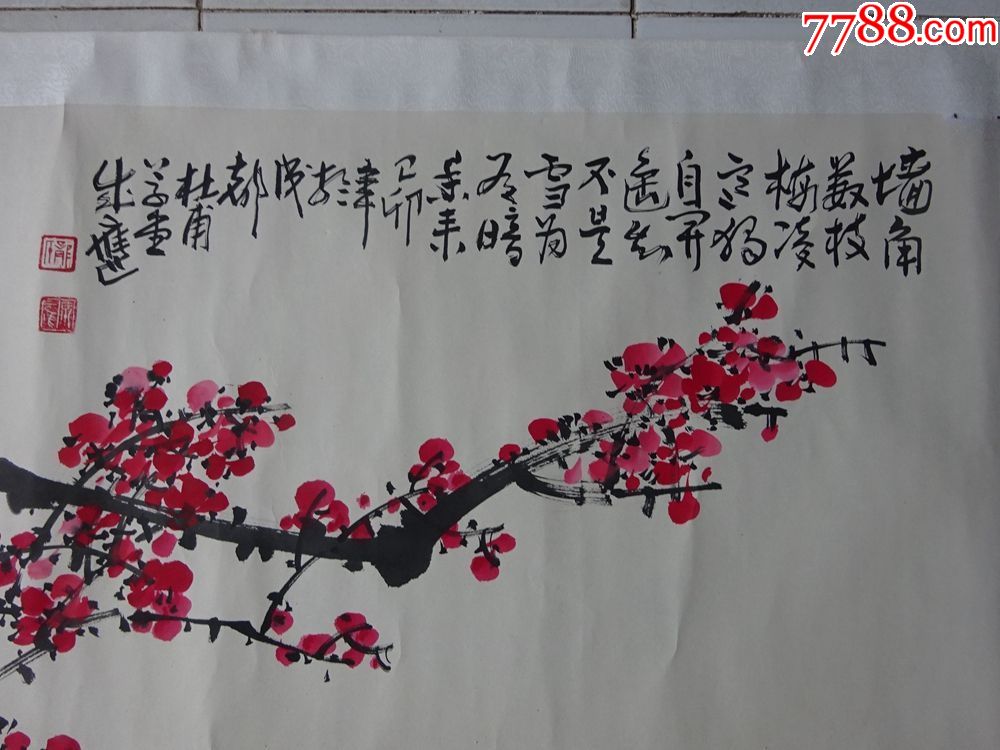 7788.com
墙角
数枝
梅凌
寒独
自开
遥知
不是
雪为
有暗
香来
己卯
於
成
都
杜甫
草堂